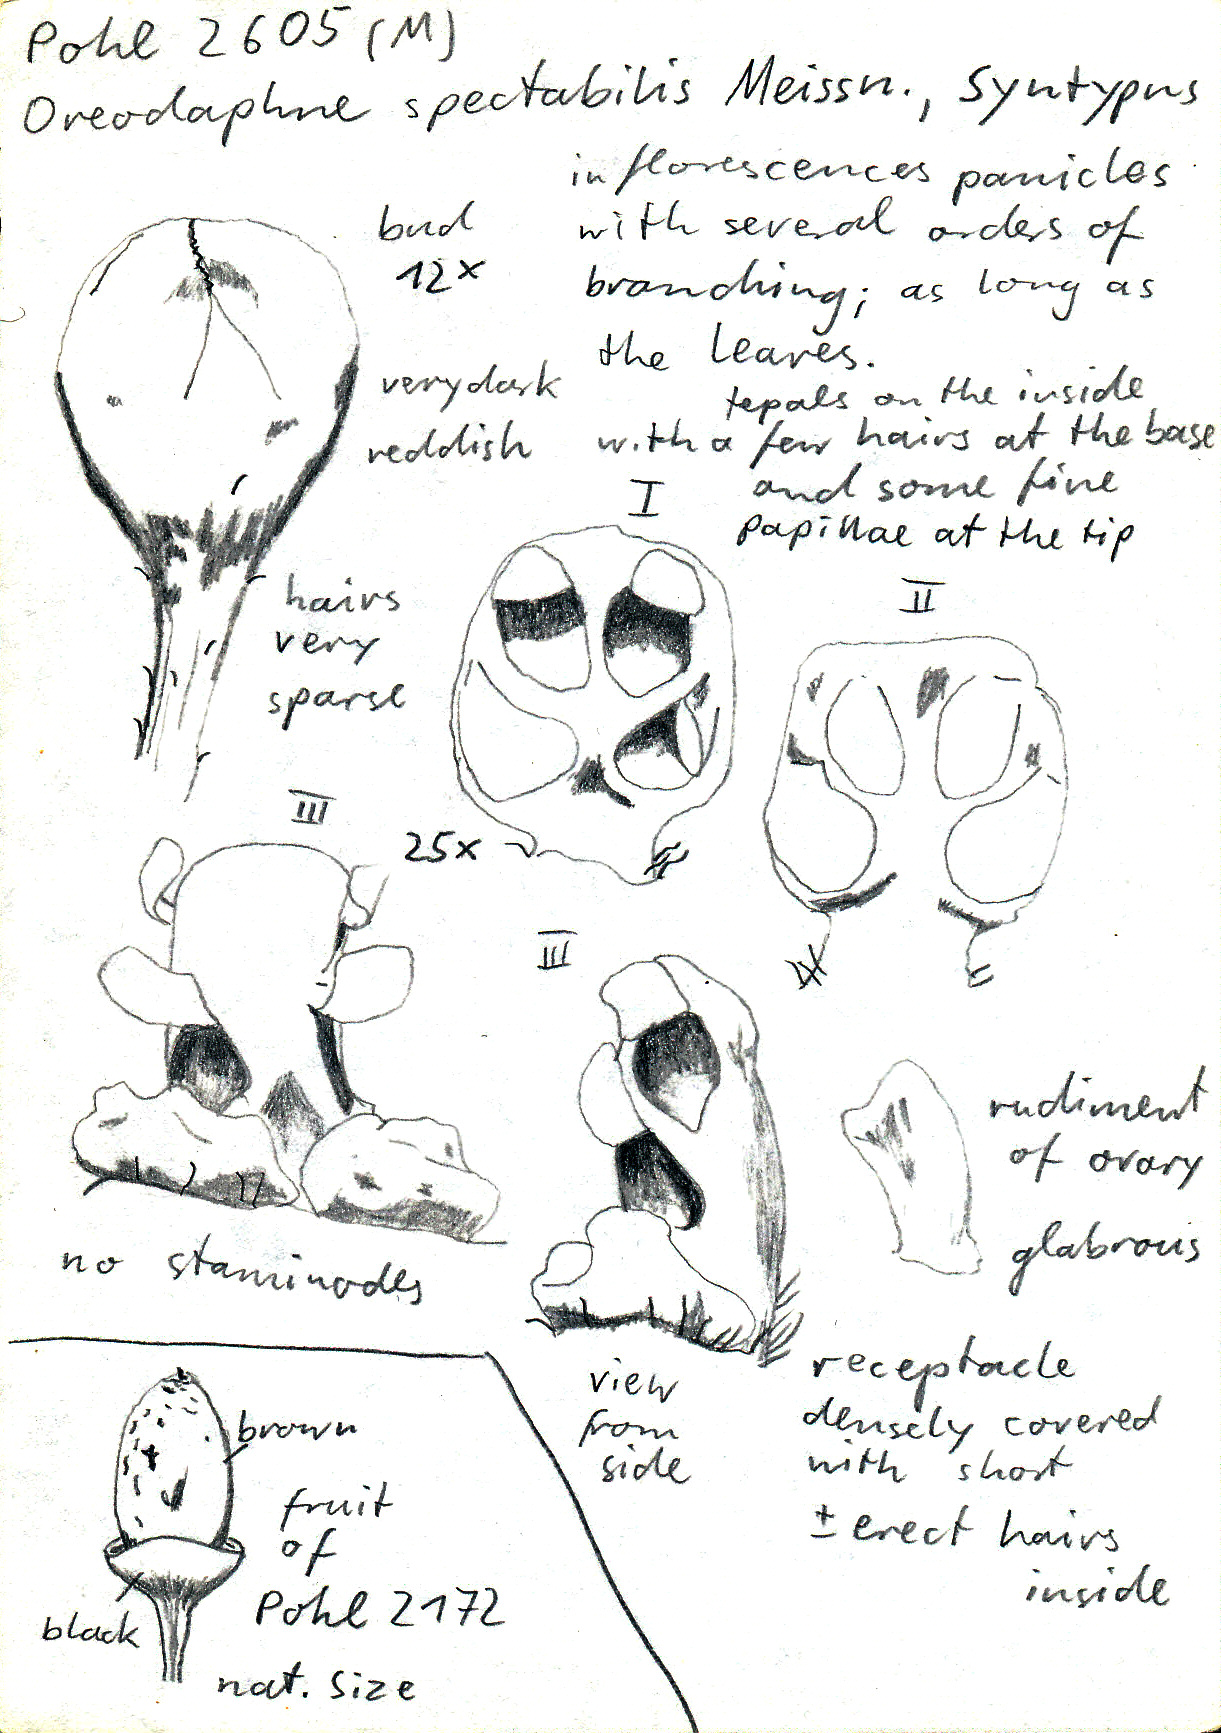 Pohl 2605 (M)
Oreodaphne spectabilis Meissn., Syntypus
inflorescences panicles
with several orders of
branching; as long as
the leaves.
bud
12x
very dark
reddish
tepals on the inside
with a few hairs at the base
and some fine
papillae at the tip
I
II
hairs
very
sparse
III
25x
III
rudiment
of ovary
glabrous
no staminodes
view
from
side
receptacle
densely covered
with short
± erect hairs
inside
brown
fruit
of
Pohl 2172
black
nat. size